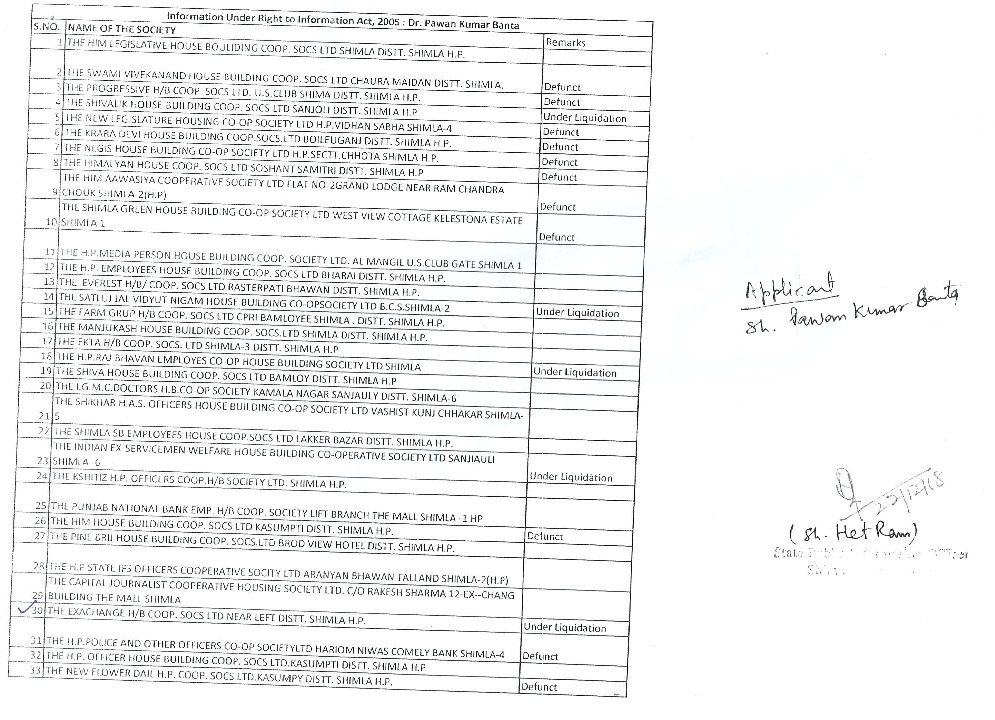 Information Under Right to Information Act, 2005 : Dr. Pawan Kumar Banta
S.NO. NAME OF THE SOCIETY Remarks
1 THE HIM LEGISLATIVE HOUSE BOULIDING COOP. SOCS LTD SHIMLA DISTT. SHIMLA H.P.
2 THE SWAMI VIVEKANAND HOUSE BUILDING COOP. SOCS LTD CHAURA MAIDAN DISTT. SHIMLA. Defunct
3 THE PROGRESSIVE H/B COOP. SOCS LTD. U.S.CLUB SHIMA DISTT. SHIMLA H.P. Defunct
4 THE SHIVALIK HOUSE BUILDING COOP. SOCS LTD SANJOLI DISTT. SHIMLA H.P Under Liquidation
5 THE NEW LEGISLATURE HOUSING CO-OP SOCIETY LTD H.P.VIDHAN SABHA SHIMLA-4 Defunct
6 THE KRARA DEVI HOUSE BUILDING COOP.SOCS.LTD BOILEUGANJ DISTT. SHIMLA H.P. Defunct
7 THE NEGIS HOUSE BUILDING CO-OP SOCIETY LTD H.P.SECTT.CHHOTA SHIMLA H.P. Defunct
8 THE HIMALYAN HOUSE COOP. SOCS LTD SOSHANT SAMITRI DISTT. SHIMLA H.P Defunct
THE HIM AAWASIYA COOPERATIVE SOCIETY LTD FLAT NO 2GRAND LODGE NEAR RAM CHANDRA
9 CHOUK SHIMLA-2(H.P) Defunct
THE SHIMLA GREEN HOUSE BUILDING CO-OP SOCIETY LTD WEST VIEW COTTAGE KELESTONA ESTATE
10 SHIMLA 1 Defunct
11 THE H.P.MEDIA PERSON HOUSE BUILDING COOP. SOCIETY LTD. AL MANGIL U.S.CLUB GATE SHIMLA 1
12 THE H.P. EMPLOYEES HOUSE BUILDING COOP. SOCS LTD BHARAI DISTT. SHIMLA H.P.
13 THE EVEREST H/B/ COOP. SOCS LTD RASTERPATI BHAWAN DISTT. SHIMLA H.P.
14 THE SATLUJ JAL VIDYUT NIGAM HOUSE BUILDING CO-OPSOCIETY LTD B.C.S.SHIMLA-2
15 THE FARM GRUP H/B COOP. SOCS LTD CPRI BAMLOYEE SHIMLA . DISTT. SHIMLA H.P. Under Liquidation
16 THE MANJUKASH HOUSE BUILDING COOP. SOCS.LTD SHIMLA DISTT. SHIMLA H.P.
17 THE EKTA H/B COOP. SOCS. LTD SHIMLA-3 DISTT. SHIMLA H.P
18 THE H.P.RAJ BHAVAN EMPLOYES CO-OP HOUSE BUILDING SOCIETY LTD SHIMLA
19 THE SHIVA HOUSE BUILDING COOP. SOCS LTD BAMLOY DISTT. SHIMLA H.P Under Liquidation
20 THE I.G.M.C.DOCTORS H.B.CO-OP SOCIETY KAMALA NAGAR SANJAULY DISTT. SHIMLA-6
THE SHIKHAR H.A.S. OFFICERS HOUSE BUILDING CO-OP SOCIETY LTD VASHIST KUNJ CHHAKAR SHIMLA-
21 5
22 THE SHIMLA SB EMPLOYEES HOUSE COOP.SOCS LTD LAKKER BAZAR DISTT. SHIMLA H.P.
THE INDIAN EX SERVICEMEN WELFARE HOUSE BUILDING CO-OPERATIVE SOCIETY LTD SANJIAULI
23 SHIMLA -6 Under Liquidation
24 THE KSHITIZ H.P. OFFICERS COOP.H/B SOCIETY LTD. SHIMLA H.P.
25 THE PUNJAB NATIONAL BANK EMP. H/B COOP. SOCIETY LIFT BRANCH THE MALL SHIMLA -1 HP
26 THE HIM HOUSE BUILDING COOP. SOCS LTD KASUMPTI DISTT. SHIMLA H.P. Defunct
27 THE PINE BRII HOUSE BUILDING COOP. SOCS.LTD BROD VIEW HOTEL DISTT. SHIMLA H.P.
28 THE H.P STATE IFS OFFICERS COOPERATIVE SOCITY LTD ARANYAN BHAWAN TALLAND SHIMLA-2(H.P)
THE CAPITAL JOURNALIST COOPERATIVE HOUSING SOCIETY LTD. C/O RAKESH SHARMA 12-EX--CHANG
29 BUILDING THE MALL SHIMLA
30 THE EXACHANGE H/B COOP. SOCS LTD NEAR LEFT DISTT. SHIMLA H.P. Under Liquidation
31 THE H.P.POLICE AND OTHER OFFICERS CO-OP SOCIETYLTD HARIOM NIWAS COMELY BANK SHIMLA-4 Defunct
32 THE H.P. OFFICER HOUSE BUILDING COOP. SOCS LTD.KASUMPTI DISTT. SHIMLA H.P
33 THE NEW FLOWER DAIL H.P. COOP. SOCS LTD.KASUMPY DISTT. SHIMLA H.P. Defunct
Applicant
Sh. Pawan Kumar Banta
22/12/18
(Sh. Het Ram)
State